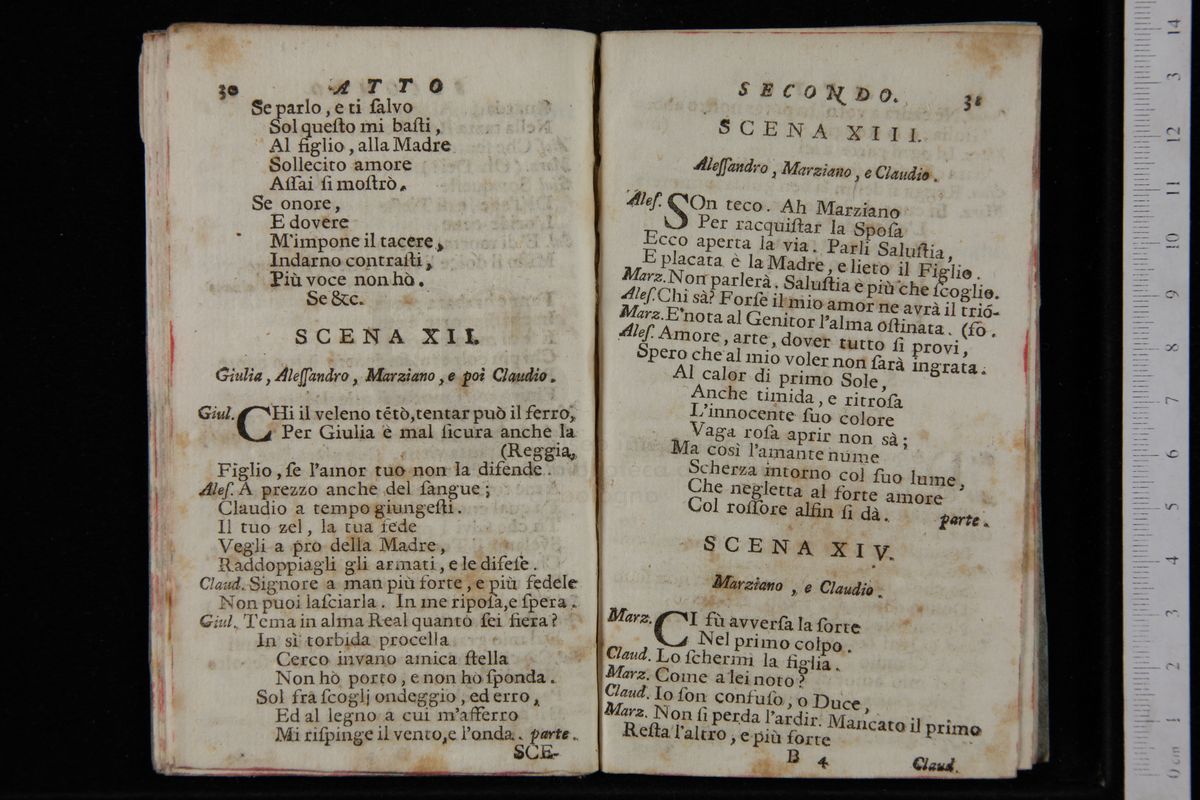 30 ATTO
Se parlo, e ti ſalvo
Sol queſto mi baſti,
Al figlio, alla Madre
Sollecito amore
Aſſai ſi moſtrò.
Se onore,
E dovere
M'impone il tacere,
Indarno contraſti,
Più voce non hò.
Se &c.
SCENA XII.
Giulia, Aleſſandro, Marziano, e poi Claudio.
Giul. CHi il veleno tẽtò, tentar può il ferro,
Per Giulia è mal ſicura anche la
(Reggia,
Figlio, ſe l'amor tuo non la difende.
Aleſ. A prezzo anche del ſangue;
Claudio a tempo giungeſti.
Il tuo zel, la tua fede
Vegli a prò della Madre,
Raddoppiagli gli armati, e le difeſe.
Claud. Signore a man più forte, e più fedele
Non puoi laſciarla. In me ripoſa, e ſpera.
Giul. Tema in alma Real quanto ſei fiera?
In sì torbida procella
Cerco invano amica ſtella
Non hò porto, e non ho ſponda.
Sol fra ſcoglj ondeggio, ed erro,
Ed al legno a cui m'afferro
Mi riſpinge il vento, e l'onda. parte.
SCE-
SECONDO. 31
SCENA XIII.
Aleſſandro, Marziano, e Claudio.
Aleſ. SOn teco. Ah Marziano
Per racquiſtar la Spoſa
Ecco aperta la via. Parli Saluſtia,
E placata è la Madre, e lieto il Figlio.
Marz. Non parlerà. Saluſtia è più che ſcoglio.
Aleſ. Chi sà? Forſe il mio amor ne avrà il trió-
Marz. E' nota al Genitor l'alma oſtinata. (fo.
Aleſ. Amore, arte, dover tutto ſi provi,
Spero che al mio voler non ſarà ingrata.
Al calor di primo Sole,
Anche timida, e ritroſa
L'innocente ſuo colore
Vaga roſa aprir non sà;
Ma così l'amante nume
Scherza intorno col ſuo lume,
Che negletta al forte amore
Col roſſore alfin ſi dà. parte.
SCENA XIV.
Marziano, e Claudio.
Marz. CI fù avverſa la ſorte
Nel primo colpo.
Claud. Lo ſchermì la figlia.
Marz. Come a lei noto?
Claud. Io ſon confuſo, o Duce,
Marz. Non ſi perda l'ardir. Mancato il primo
Reſta l'altro, e più forte
B 4 Claud.